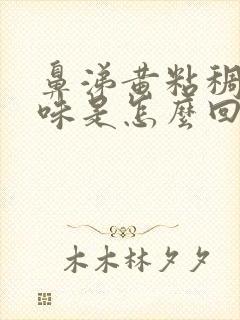 鼻涕黄粘稠
味是怎麼回
木木林夕夕